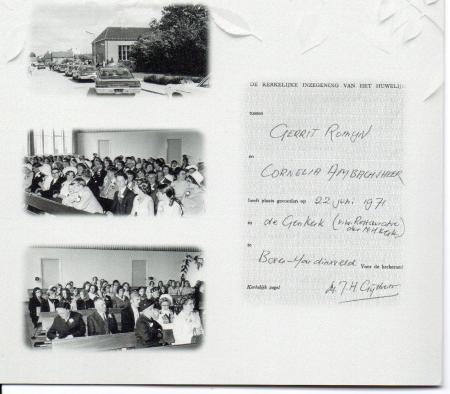 DE KERKELIJKE INZEGENING VAN HET HUWELIJK
tussen
GERRIT ROMIJN
en
CORNELIA AMBACHTSHEER
heeft plaats gevonden op 22 juni 1971
in de GerKerk (i.v.m. Restauratie
der N.H. Kerk)
te
Boven-Hardinxveld Voor de kerkeraad
Kerkelijk zegel Ds J.H.